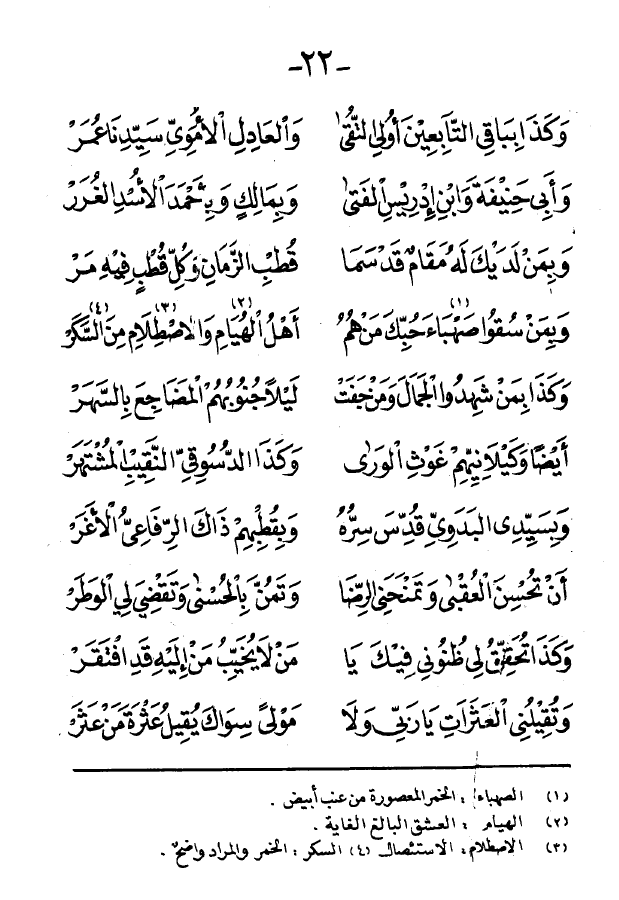 -٢٢-
وَكَذَا بِبَاقِي التَّابِعِيْنَ أُولِي التُّقَىٰ وَالْعَادِلِ الْأُمَوِيِّ سَيِّدِنَا عُمَرْ
وَأَبِي حَنِيْفَةَ وَابْنِ إِدْرِيْسِ الْفَتَىٰ وَبِمَالِكٍ وَبِأَحْمَدَ الْأُسْدِ الْغُرَرْ
وَبِمَنْ لَدَيْكَ لَهُ مَقَامٌ قَدْ سَمَا قُطْبِ الزَّمَانِ وَكُلِّ قُطْبٍ فِيْهِ مَرْ
وَبِمَنْ سُقُوا صَهْبَاءَ (١) حُبِّكَ مَنْ هُمُ أَهْلُ الْهُيَامِ (٢) وَالْاصْطِلَامِ (٣) مِنَ السَّكَرْ (٤)
وَكَذَا بِمَنْ شَهِدُوا الْجَمَالَ وَمَنْ جَفَتْ لَيْلًا جُنُوبُهُمُ الْمَضَاجِعَ بِالسَّهَرْ
أَيْضًا وَكَيْلَانِيِّهِمْ غَوْثِ الْوَرَى وَكَذَا الدُّسُوقِيِّ النَّقِيْبِ الْمُشْتَهَرْ
وَبِسَيِّدِي الْبَدَوِيِّ قُدِّسَ سِرُّهُ وَبِقُطْبِهِمْ ذَاكَ الرِّفَاعِيُّ الْأَغَرْ
أَنْ تُحْسِنَ الْعُقْبَىٰ وَتَمْنَحَنِي الرِّضَا وَتَمُنَّ بِالْحُسْنَىٰ وَتَقْضِيَ لِي الْوَطَرْ
وَكَذَا تُحَقِّقُ لِي ظُنُونِي فِيْكَ يَا مَنْ لَا يُخَيِّبُ مَنْ إِلَيْهِ قَدِ افْتَقَرْ
وَتُقِيْلُنِي الْعَثَرَاتِ يَا رَبِّي وَلَا مَوْلَىً سِوَاكَ يُقِيْلُ عَثْرَةَ مَنْ عَثَرْ
(١) الصهباء : الخمر المعصورة من عنب أبيض .
(٢) الهيام : العشق البالغ الغاية .
(٣) الاصطلام : الاستئصال (٤) السكر : الخمر والمراد واضح .